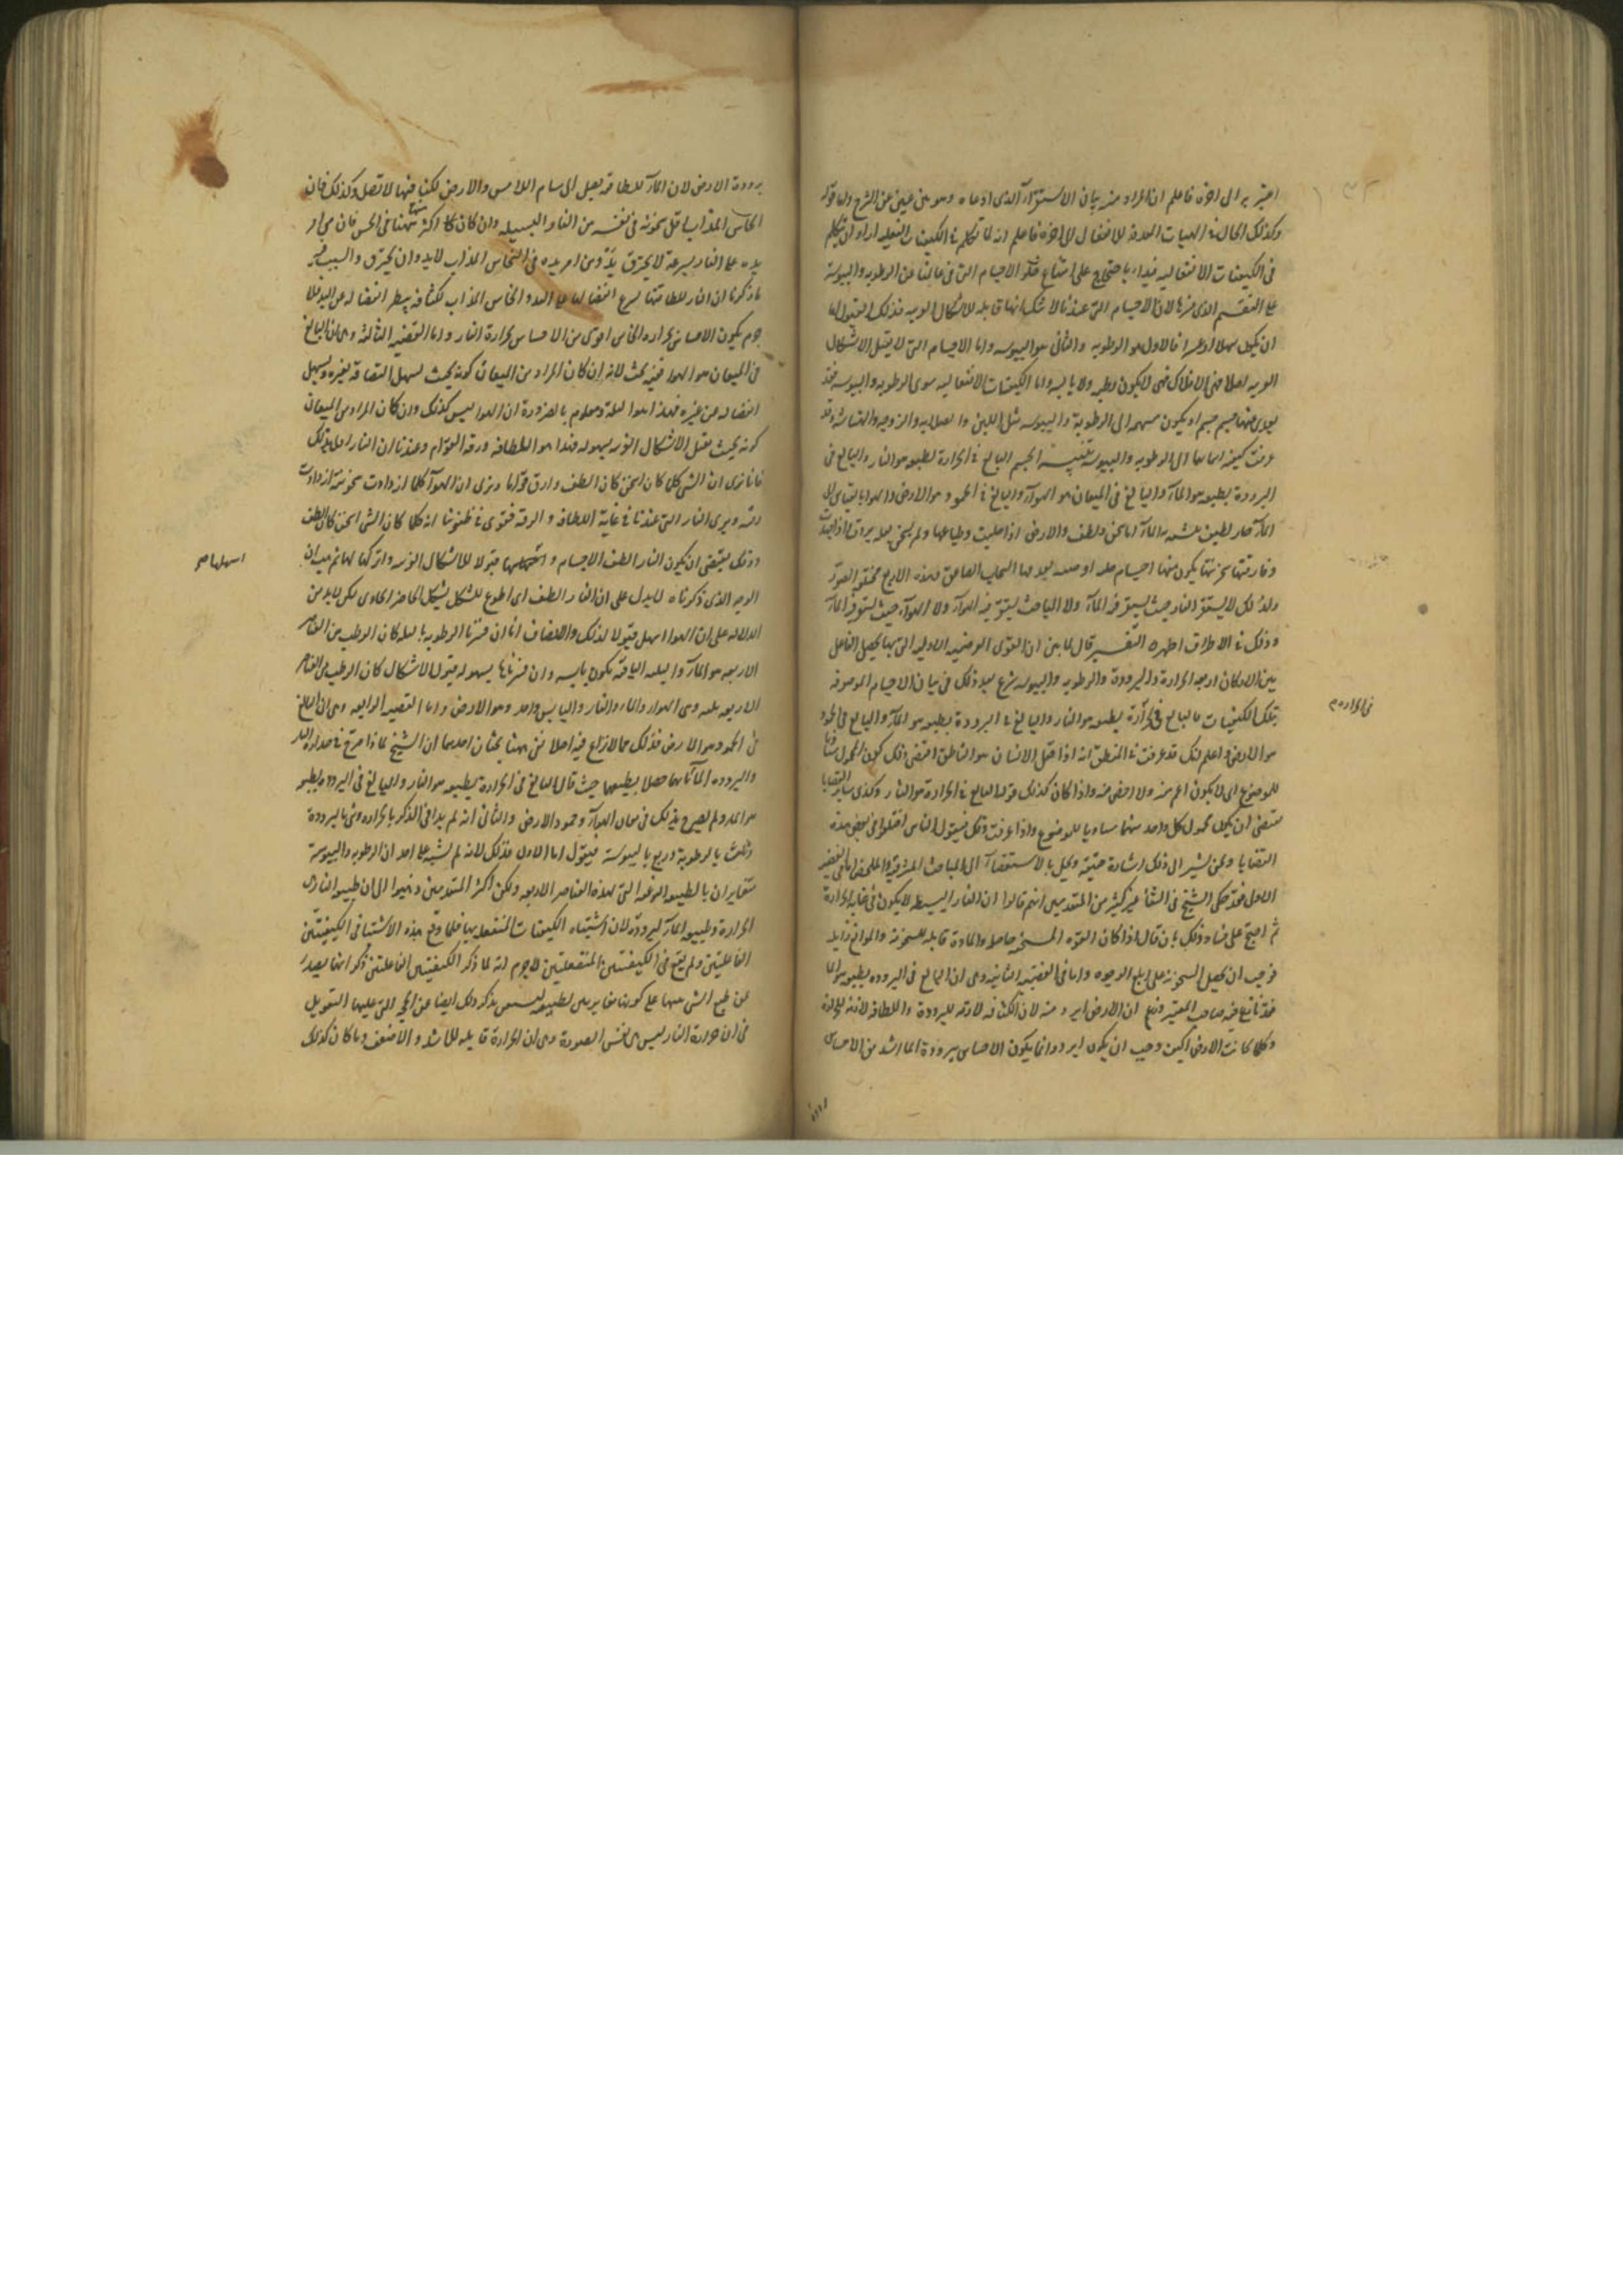 اعتبر به الى اخره فاعلم ان المراد منه بيان الاستقراء الذى ادعاه وهو بين غنى عن الشرح واما قوله
وكذلك الحال فى الهيات المعدة للانفعال الى اخره فاعلم انه لما تكلم فى الكيفيات الفعليه اراد ان يتكلم
فى الكيفيات الانفعاليه فبداء باحتجاج على امتناع خلو الاجسام التى فى عالمنا عن الرطوبه واليبوسة
على التفسير الذى مر لان الاجسام التى عندنا لا شك انها قابله للاشكال الغريبه فذلك القبول اما
ان يكون سهلا او عسرا فالاول هو الرطوبه والثانى هو اليبوسه واما الاجسام التى لا يقبل الاشكال
الغريبه اصلا فهى الافلاك فهى لا يكون رطبه ولا يابسه واما الكيفيات الانفعاليه سوى الرطوبه واليبوسه فقد
يعرى عنها جسم جسم او يكون منتهيه الى الرطوبة واليبوسه مثل اللين والصلابه واللزوجه والهشاشه وقد
عرفت كيفيه انتمائها الى الرطوبه واليبوسه تنبيه الجسم البالغ فى الحرارة بطبعه هو النار والبالغ فى
البرودة بطبعه هو الماء والبالغ فى الميعان هو الهواء والبالغ فى الجمود هو الارض والهوا بالقياس الى
الماء حار لطيف يتشبه به الماء اذا سخن ولطف والارض اذا خليت وطباعها ولم يسخن بعله بردت واذا خمدت النار
وفارقتها سخونتها يكون منها اجسام صلبه ارضيه يقذفها السحاب الصاعق فهذه الاربع مختلفة الصور
ولذلك لا يستقر النار حيث يستقر فيه الماء ولا الماء حيث يستقر فيه الهواء ولا الهواء حيث يستقر فيه الماء
وذلك فى الاطراف اظهر التفسير قال لما بين ان القوى العرضيه الاوليه التى بها يحصل التفاعل
بين الاركان اربعه الحرارة والبرودة والرطوبه واليبوسه شرع بعد ذلك فى بيان الاجسام الموصوفه
بتلك الكيفيات فالبالغ فى الحرارة بطبعه هو النار والبالغ فى البرودة بطبعه هو الماء والبالغ فى الجمود
هو الارض واعلم انك قد عرفت فى المنطق انه اذا قيل الانسان هو الناطق اقتضى ذلك كون المحمول مساويا
للموضوع اى لا يكون اعم منه ولا اخص منه واذا كان كذلك قولنا البالغ فى الحرارة هو النار وكذى ساير القضايا
يقتضى ان يكون محمول كل واحد منها مساويا للموضوع واذا عرفت ذلك فنقول الناس اختلفوا فى بعض هذه
القضايا ونحن نشير الى ذلك اشارة خفيفة ونحيل بالاستقصاء الى المباحث المشرقية والملخص اما فى القضيه
الاولى فقد حكى الشيخ فى الشفا عن كثير من المتقدمين انهم قالوا ان النار البسيطه لا يكون فى غاية الحرارة
ثم احتج على فساد ذلك بان قال اذا كان القوه المسخنه حاصلة والمادة قابله للسخونه والموانع زايله
فوجب ان يحصل السخونة على ابلغ الوجوه واما فى القضيه الثانيه وهى ان البالغ فى البروده بطبعه هو الما
فقد نازع فيه صاحب المعتبر وزعم ان الارض ابرد منه لان الكثافه لازمه للبرودة واللطافه لازمه للحرارة
وكلما كانت الارض اكثف وجب ان يكون ابرد وانما يكون الاحساس ببرودة الما اشد من الاحساس
برودة
فى الحرارة
برودة الارض لان الماء للطافته يصل الى مسام اللامس والارض لكثافتها لا تصل وكذلك فان
النحاس المذاب اقل سخونة فى نفسه من النار البسيطه وان كان اكثر سخونة منها فى الحس فان من امر
يده على النار بسرعة لا يحترق يده ومن امر يده فى النحاس المذاب لابد وان يحترق والسبب فيه
ما ذكرنا ان النار للطافتها يسرع انفصالها عن اليد والنحاس المذاب لكثافته يبطئ انفصاله عن اليد فلا
جرم يكون الاحساس بحرارة النحاس اقوى من الاحساس بحرارة النار واما القضيه الثالثه وهى ان البالغ
فى الميعان هو الهوا ففيه بحث لانه ان كان المراد من الميعان كونه بحيث يسهل التصاقه بغيره ويسهل
انفصاله عن غيره فهذا هو البلة ومعلوم بالضرورة ان الهوا ليس كذلك وان كان المراد من الميعان
كونه بحيث يقبل الاشكال الغريبه بسهوله فهذا هو اللطافه ورقة القوام وعندنا ان النار اولى بذلك
فانا نرى ان الشى كلما كان اسخن كان الطف وارق قواما ونرى ان الهواء كلما ازدادت سخونته ازدادت
رقته ونرى النار التى عندنا فى غاية اللطافه والرقة فقوى فى ظنوننا انه كلما كان الشى اسخن كان الطف
وذلك يقتضى ان يكون النار الطف الاجسام واسهلها قبولا للاشكال الغريبه واتركها لها ثم هب ان
الوجه الذى ذكرناه لا يدل على ان النار الطف اى اطوع للتشكل بشكل الحاصر الحاوى لكن لابد من
الدلالة على ان الهوا اسهل قبولا لذلك والانصاف انا ان فسرنا الرطوبه بالبله كان الرطب من العناصر
الاربعه هو الماء والثلثه الباقيه يكون يابسه وان فسرناها بسهوله قبول الاشكال كان الرطب من العناصر
الاربعه ثلثه وهى الهواء والماء والنار واليابس واحد وهو الارض واما القضيه الرابعه وهى ان البالغ
فى الجمود هو الارض فذلك مما لا نزاع فيه اصلا بقى ههنا بحثان احدهما ان الشيخ لماذا صرح فى حرارة النار
وبرودة الماء بانهما حصلا بطبعهما حيث قال البالغ فى الحرارة بطبعه هو النار والبالغ فى البرودة بطبعه
هو الماء ولم يصرح بذلك فى ميعان الهواء وجمود الارض والثانى انه لم بدأ فى الذكر بالحرارة وثنى بالبرودة
وثلث بالرطوبة وربع باليبوسة فنقول اما الاول فذلك لانه لم يشتبه على احد ان الرطوبه واليبوسة
متغايران بالطبيعه النوعيه التى لهذه العناصر الاربعه ولكن اكثر المتقدمين ذهبوا الى ان طبيعه النار هى
الحرارة وطبيعه الماء البرودة لان اشتباه الكيفيات المنفعله بها فلما وقع هذه الاشتباه فى الكيفيتين
الفاعليتين ولم يقع فى الكيفيتين المنفعلتين لاجرم انه لما ذكر الكيفيتين الفاعلتين ذكر انها يصدر
عن طبع الشى
فى ان حرارة النار ليس هى نفس الصورة هى ان الحرارة قابله للاشد والاضعف وما كان كذلك
اسهلها صح